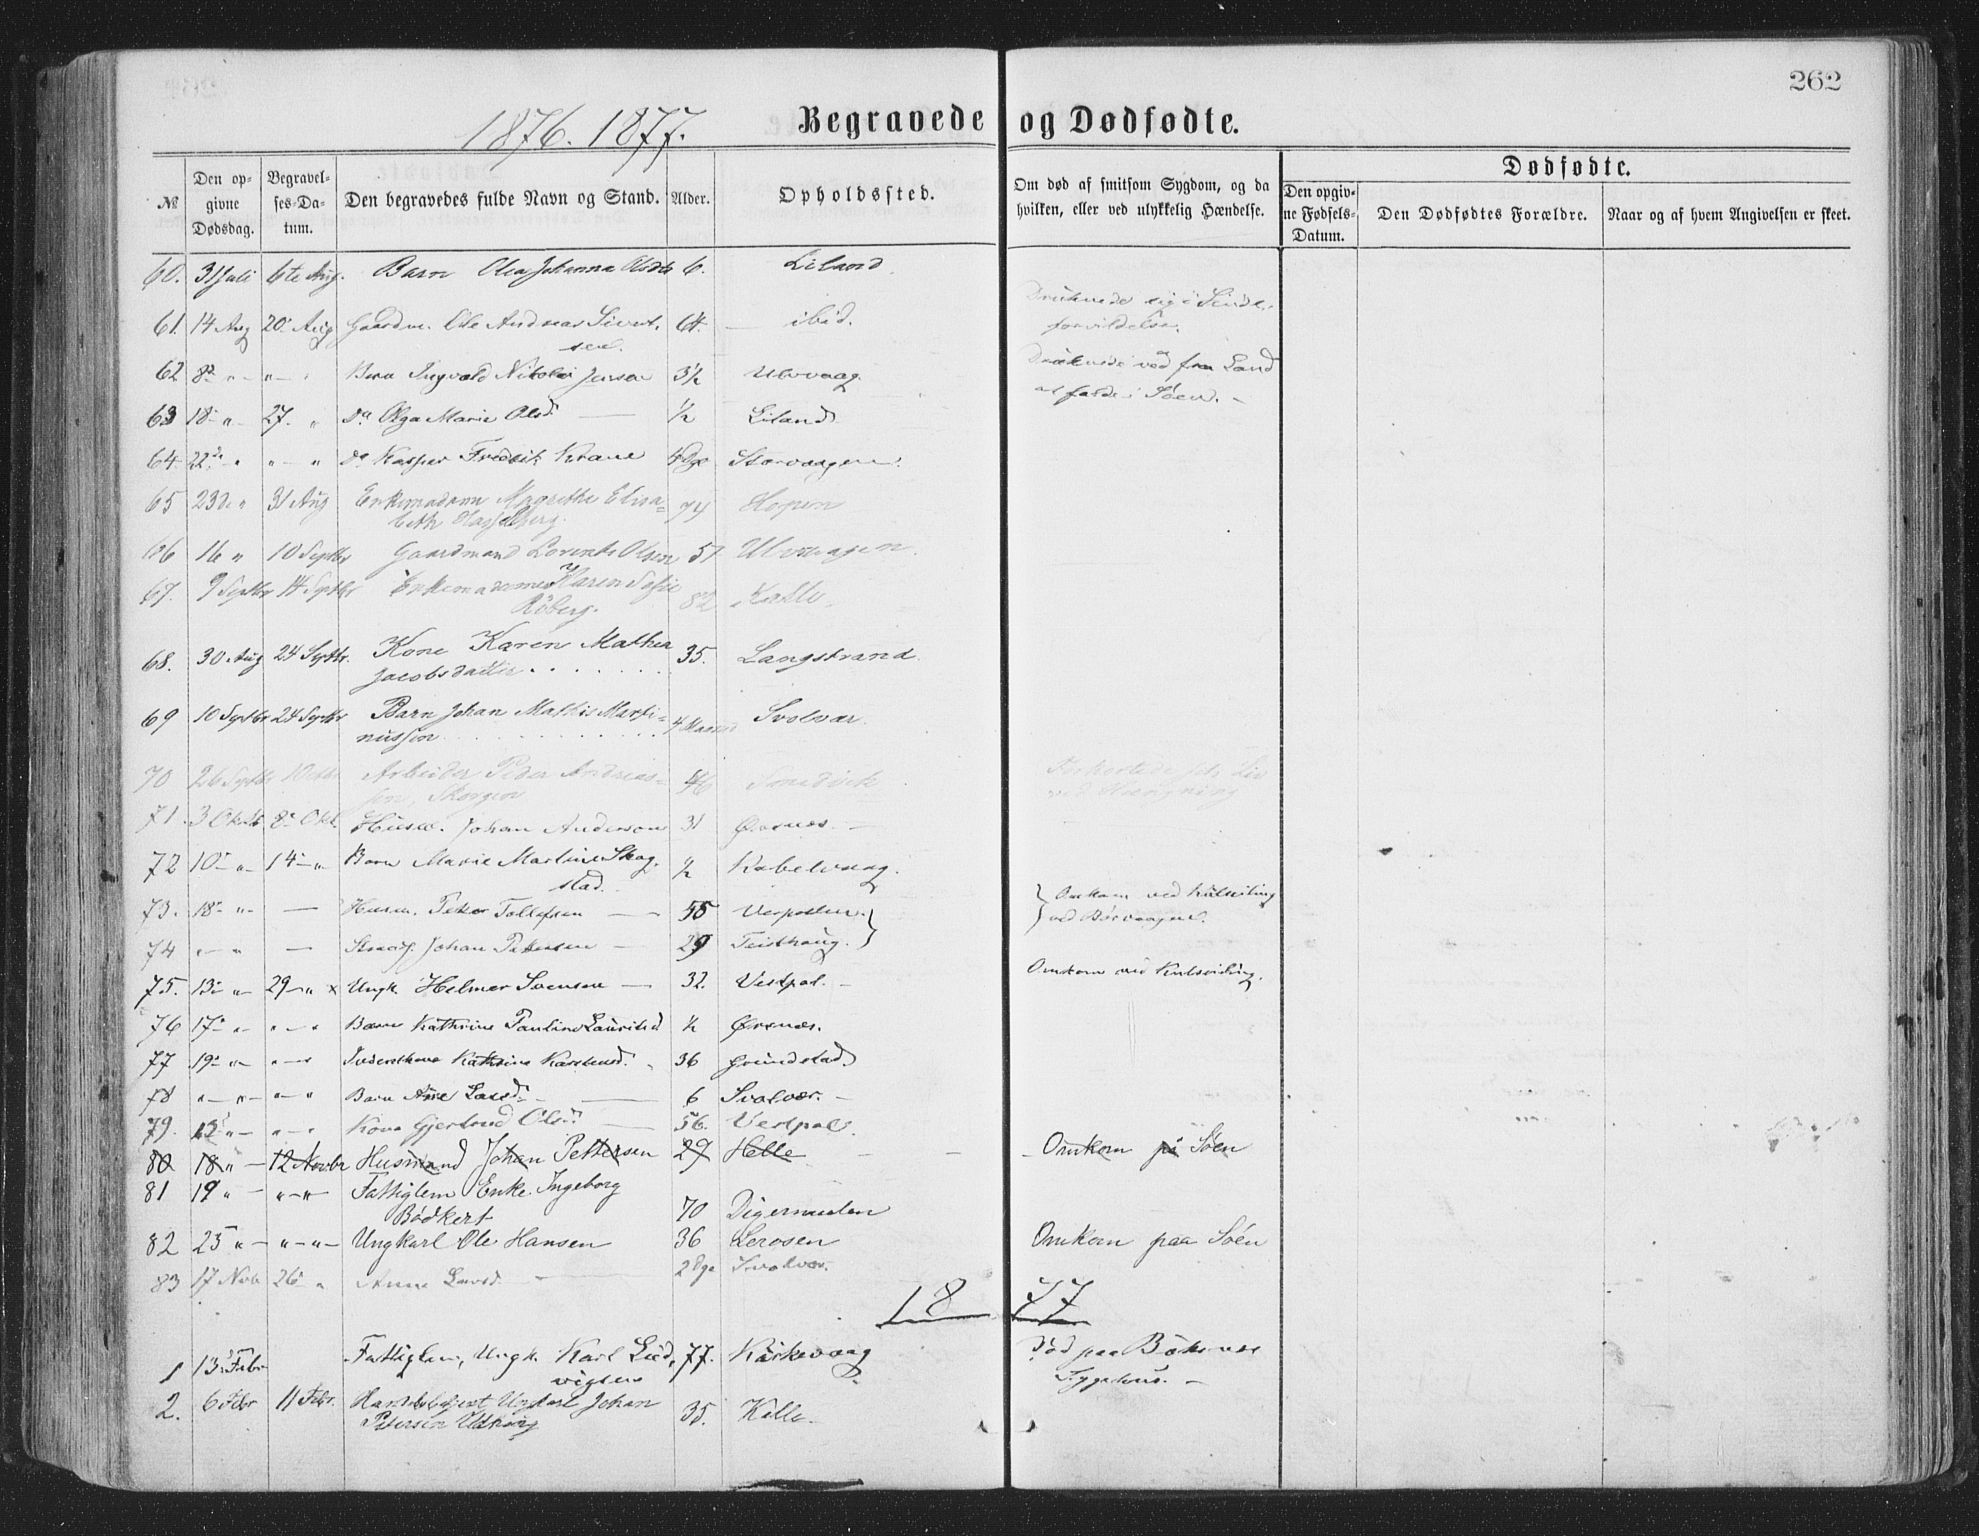 262
1876. 1877.
Begravede og Dødfødte.
Dødfødte.
№ Den opgivne Dødsdag. Begravelses-Datum. Den begravedes fulde Navn og Stand. Alder. Opholdssted. Om død af smitsom Sygdom, og da hvilken, eller ved ulykkelig Hændelse. Den opgivne Fødsels-Datum. Den Dødfødtes Forældre. Naar og af hvem Angivelsen er skeet.
60. 31 Juli 6te Aug. Barn Olea Johanna Olsdtr 6. Liland
61. 14 Aug 20 Aug Gaardm. Ole Andreas Sivert- 64. ibid. Druknede sig i Sinds-
sen. forvildelse.
62 8 " " Barn Ingvald Nikolai Jensen 3½ Ulvvaag. Druknede ved fra Land
at falde i Søen.
63 18 " 27 " do Olga Marie Olsd. ½ Liland
64. 22de " " " do Kasper Fredrik Krane 4 Dge Storvaagen.
65 23de " 31 Aug Enkemadam Magrethe Elisa= 74 Hopen
beth Hasselberg.
66 16 " 10 Septbr Gaardmand Lorents Olsen 57 Ulvvaagen.
67. 9 Septbr 14 Septbr Enkemadame Karen Sofie 82 Kalle.
Röberg.
68. 30 Aug 24 Septbr. Kone Karen Mathea 35. Langstrand
Jacobsdatter
69 10 Septbr 24 Septbr Barn Johan Mathis Marti= 4 Maaned Svolvær.
nussen
70 26 Septbr 1 Octbr Arbeider Peder Andreas-
sen, 46 Forkortede sit Liv
ved Hængning
71. 3 Oktb 8 Okt. Husm. Johan Anderson 31 Ørsnes.
72 10 " 14 " Barn Marie Martine Skog- ½ Kabelvaag.
stad.
73. 18 " Husm. Peter Tollefsen 55 Verpollen. Omkom ved Kulseiling
74 " " Johan Petersen 29 Teisthaug. ved Børvaagen.
75. 13 " 29 " x Ungk. Helmer Svensen 32. Vestpol. Omkom ved Kulseiling.
76 17 " " " Barn Kathrine Pauline Lauritsd ½ Ørsnes.
77 19 " " " Kathrine Karstensd. 36 Grundstad
78 " " " " Barn Ane Larsd. 6 Svolvær.
79. 13 " " " Kone Gjertrud Olsd. 56. Vestpol.
80 18 " 12 Novbr Husmand Johan Pettersen 29 Helle Omkom på Søen
81 19 " " " Fattiglem Enke Ingeborg
Bödkert 70 Digermulen
82 25 " " " Ungkarl Ole Hansen 36 Lerosen Omkom paa Søen
83 17 Novb 26 " Anne Larsd. 2 Dge Svolvær.
1877
1 13 Febr Fattiglem, Ungk. Karl Lud- 77. Kirkevaag Död paa Boksnes
vigsen Sygehus.
2. 6 Febr 11 Febr. Ungkarl Johan 35. Kalle.
Petersen